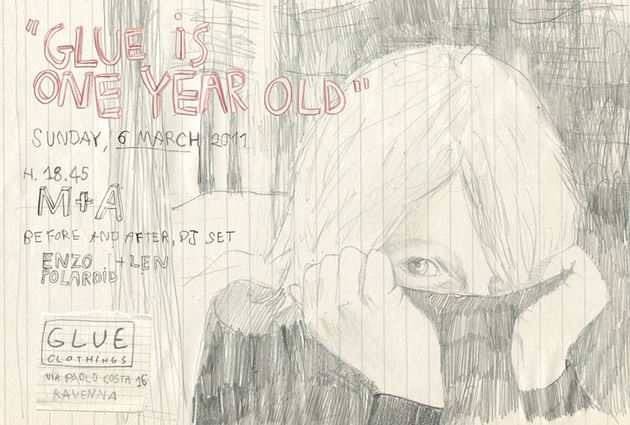 "GLUE iS
ONE YEAR OLD"
SUNDAY, 6 MARCH 2011
H. 18.45
M+A
BEFORE AND AFTER, DJ SET
ENZO + LEN
POLAROID
GLUE
CLOTHINGS
VIA PAOLO COSTA 16
RAVENNA